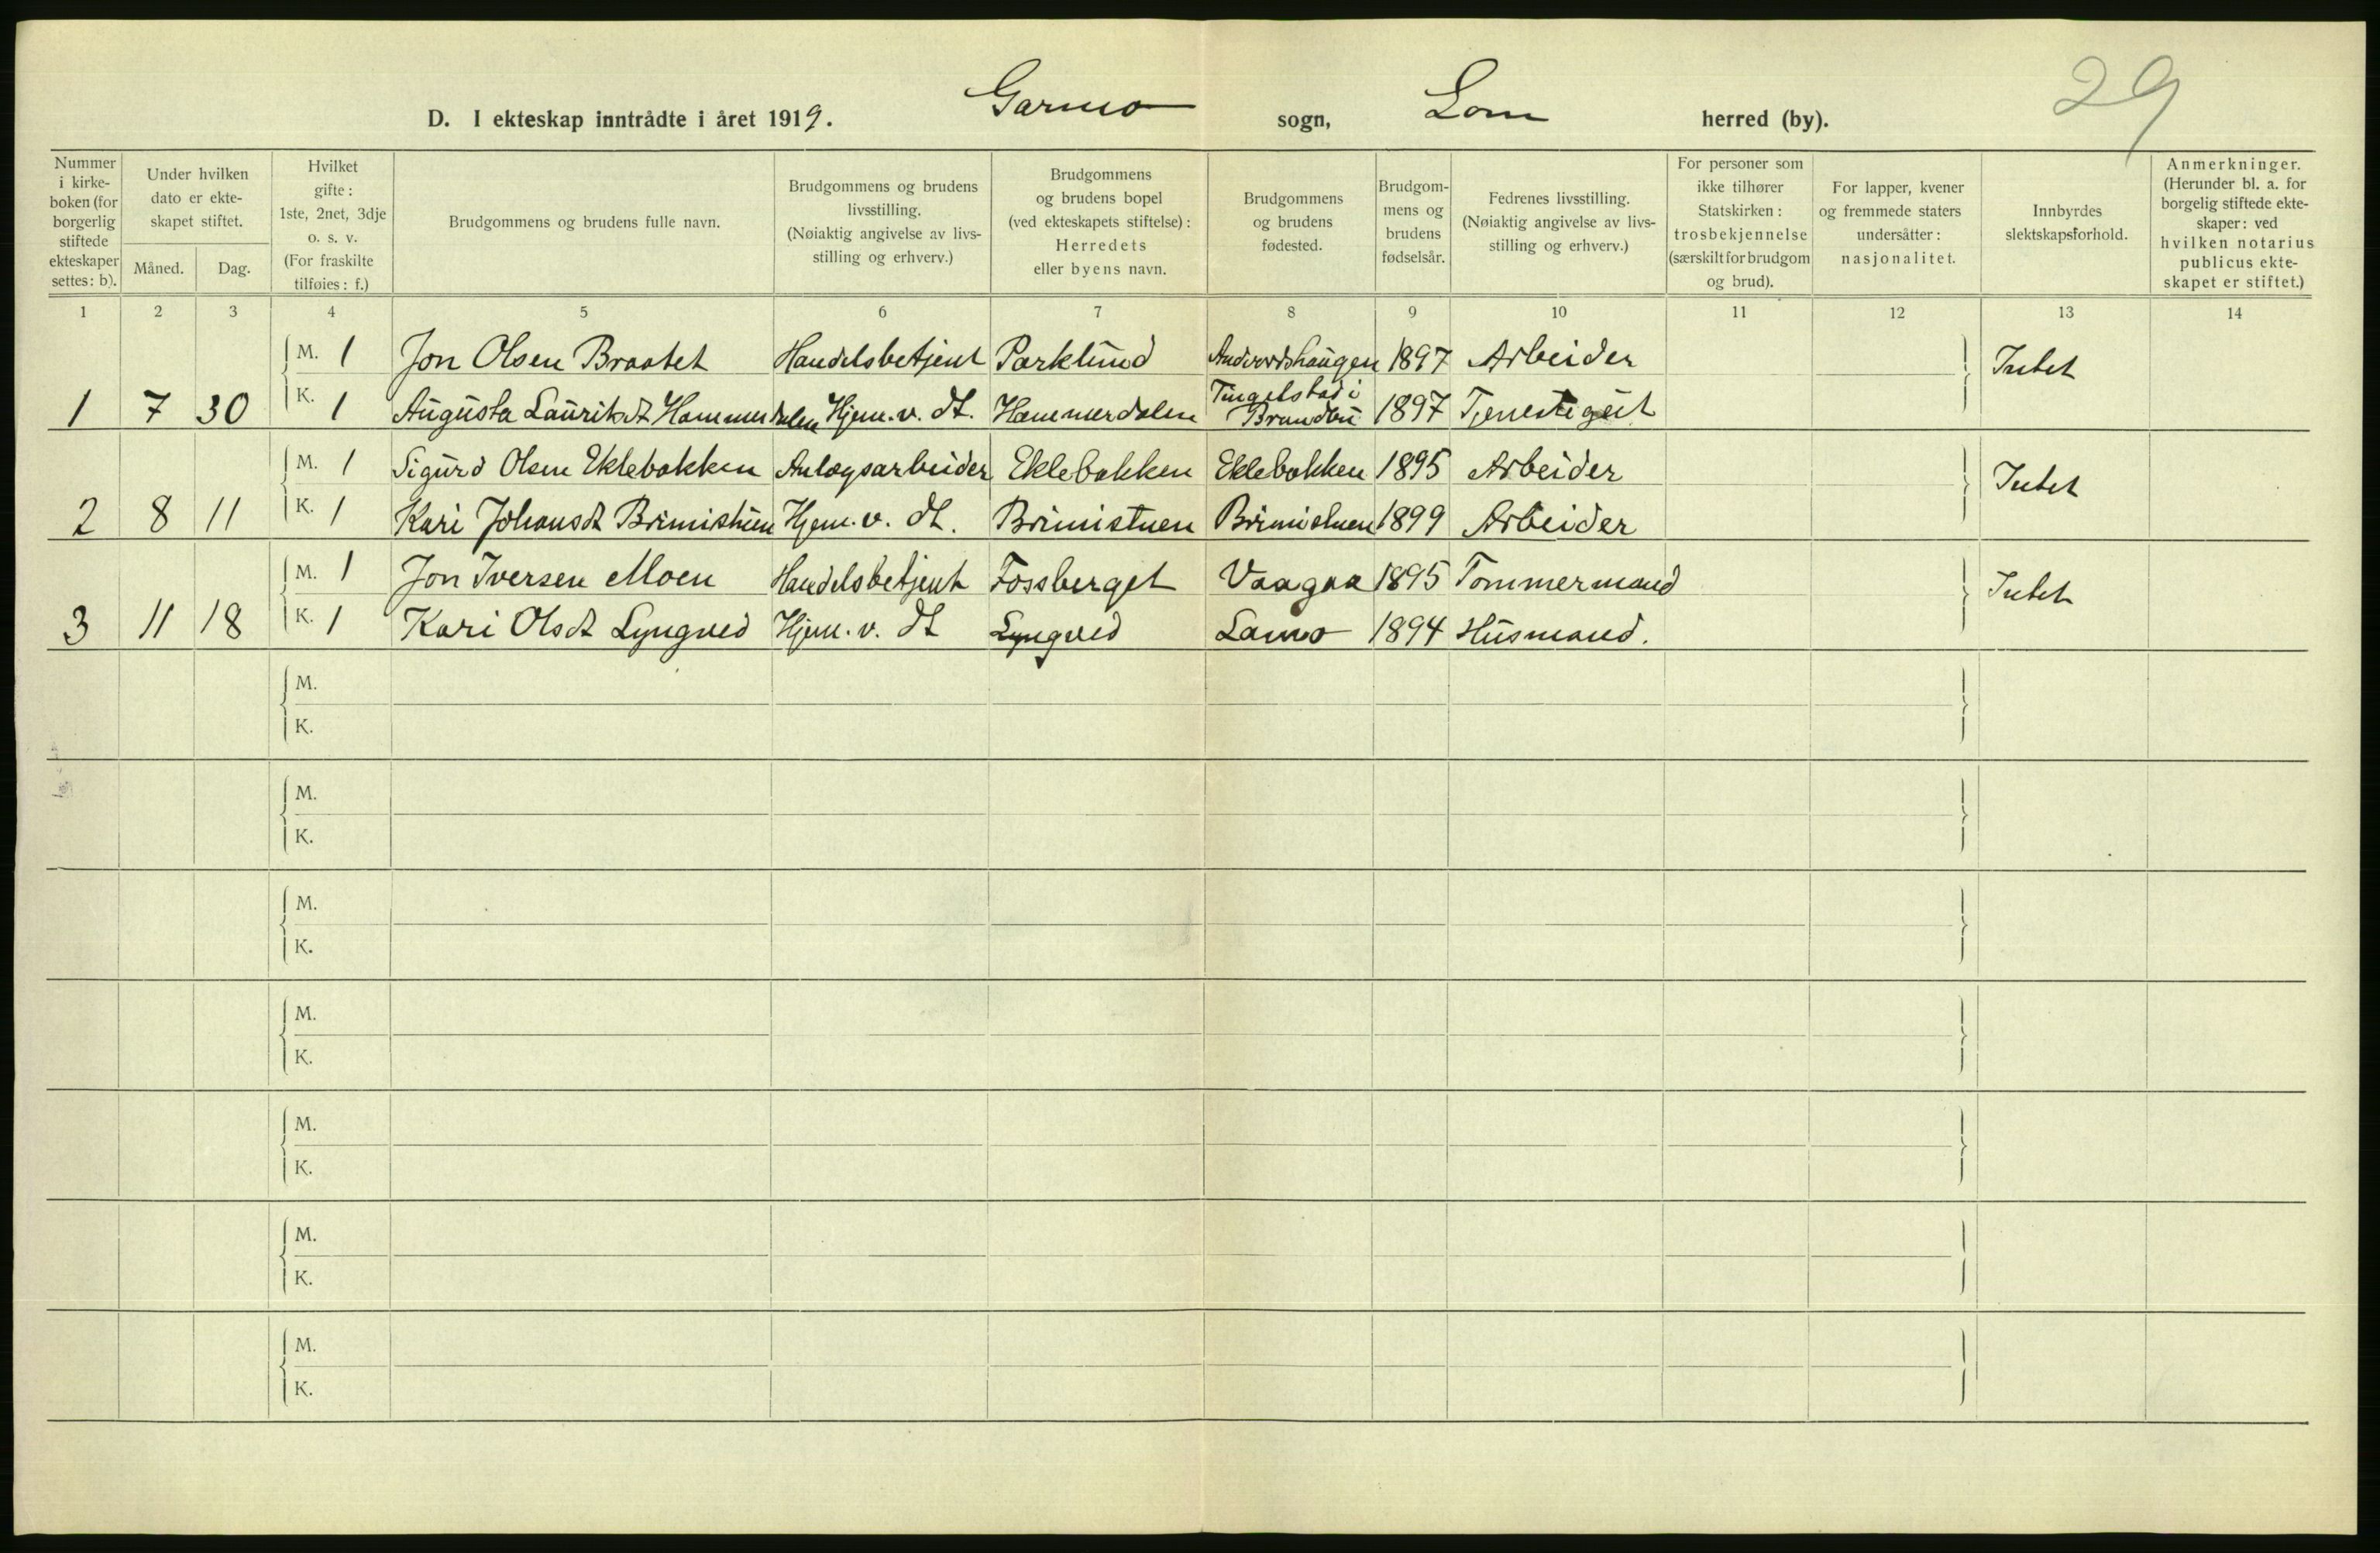 29
D. I ekteskap inntrådte i året 1919. Garmo sogn, Lom herred (by).
Nummer i kirke-boken (for borgerlig stiftede ekteskaper settes: b).
Under hvilken dato er ekte-skapet stiftet.
Måned. Dag.
Hvilket gifte: 1ste, 2net, 3dje o. s. v. (For fraskilte tilføies: f.)
Brudgommens og brudens fulle navn.
Brudgommens og brudens livsstilling. (Nøiaktig angivelse av livs-stilling og erhverv.)
Brudgommens og brudens bopel (ved ekteskapets stiftelse): Herredets eller byens navn.
Brudgommens og brudens fødested.
Brudgom-mens og brudens fødselsår.
Fedrenes livsstilling. (Nøiaktig angivelse av livs-stilling og erhverv.)
For personer som ikke tilhører Statskirken: trosbekjennelse (særskilt for brudgom og brud).
For lapper, kvener og fremmede staters undersåtter: nasjonalitet.
Innbyrdes slektskapsforhold.
Anmerkninger. (Herunder bl. a. for borgelig stiftede ekte-skaper: ved hvilken notarius publicus ekte-skapet er stiftet.)
1 2 3 4 5 6 7 8 9 10 11 12 13 14
M. 1 Jon Olsen Braatet Handelsbetjent Parklund Andvordshaugen 1897 Arbeider Intet
1 7 30 K. 1 Augusta Lauriksdt Hammerdalen Hjem. v. dt. Hammerdalen Tingelstad i Brandbu 1897 Tjenestegut
M. 1 Sigurd Olsen Eklebakken Anlægsarbeider Eklebakken Eklebakken 1895 Arbeider Intet
2 8 11 K. 1 Kari Johansdt Brimistuen Hjem. v. dt. Brimistuen Brimistuen 1899 Arbeider
M. 1 Jon Iversen Moen Handelsbetjent Fossberget Vaagaa 1895 Tømmermand Intet
3 11 18 K. 1 Kari Olsdt Lyngved Hjem. v. dt Lyngved 1894 Husmand.
M.
K.
M.
K.
M.
K.
M.
K.
M.
K.
M.
K.
M.
K.